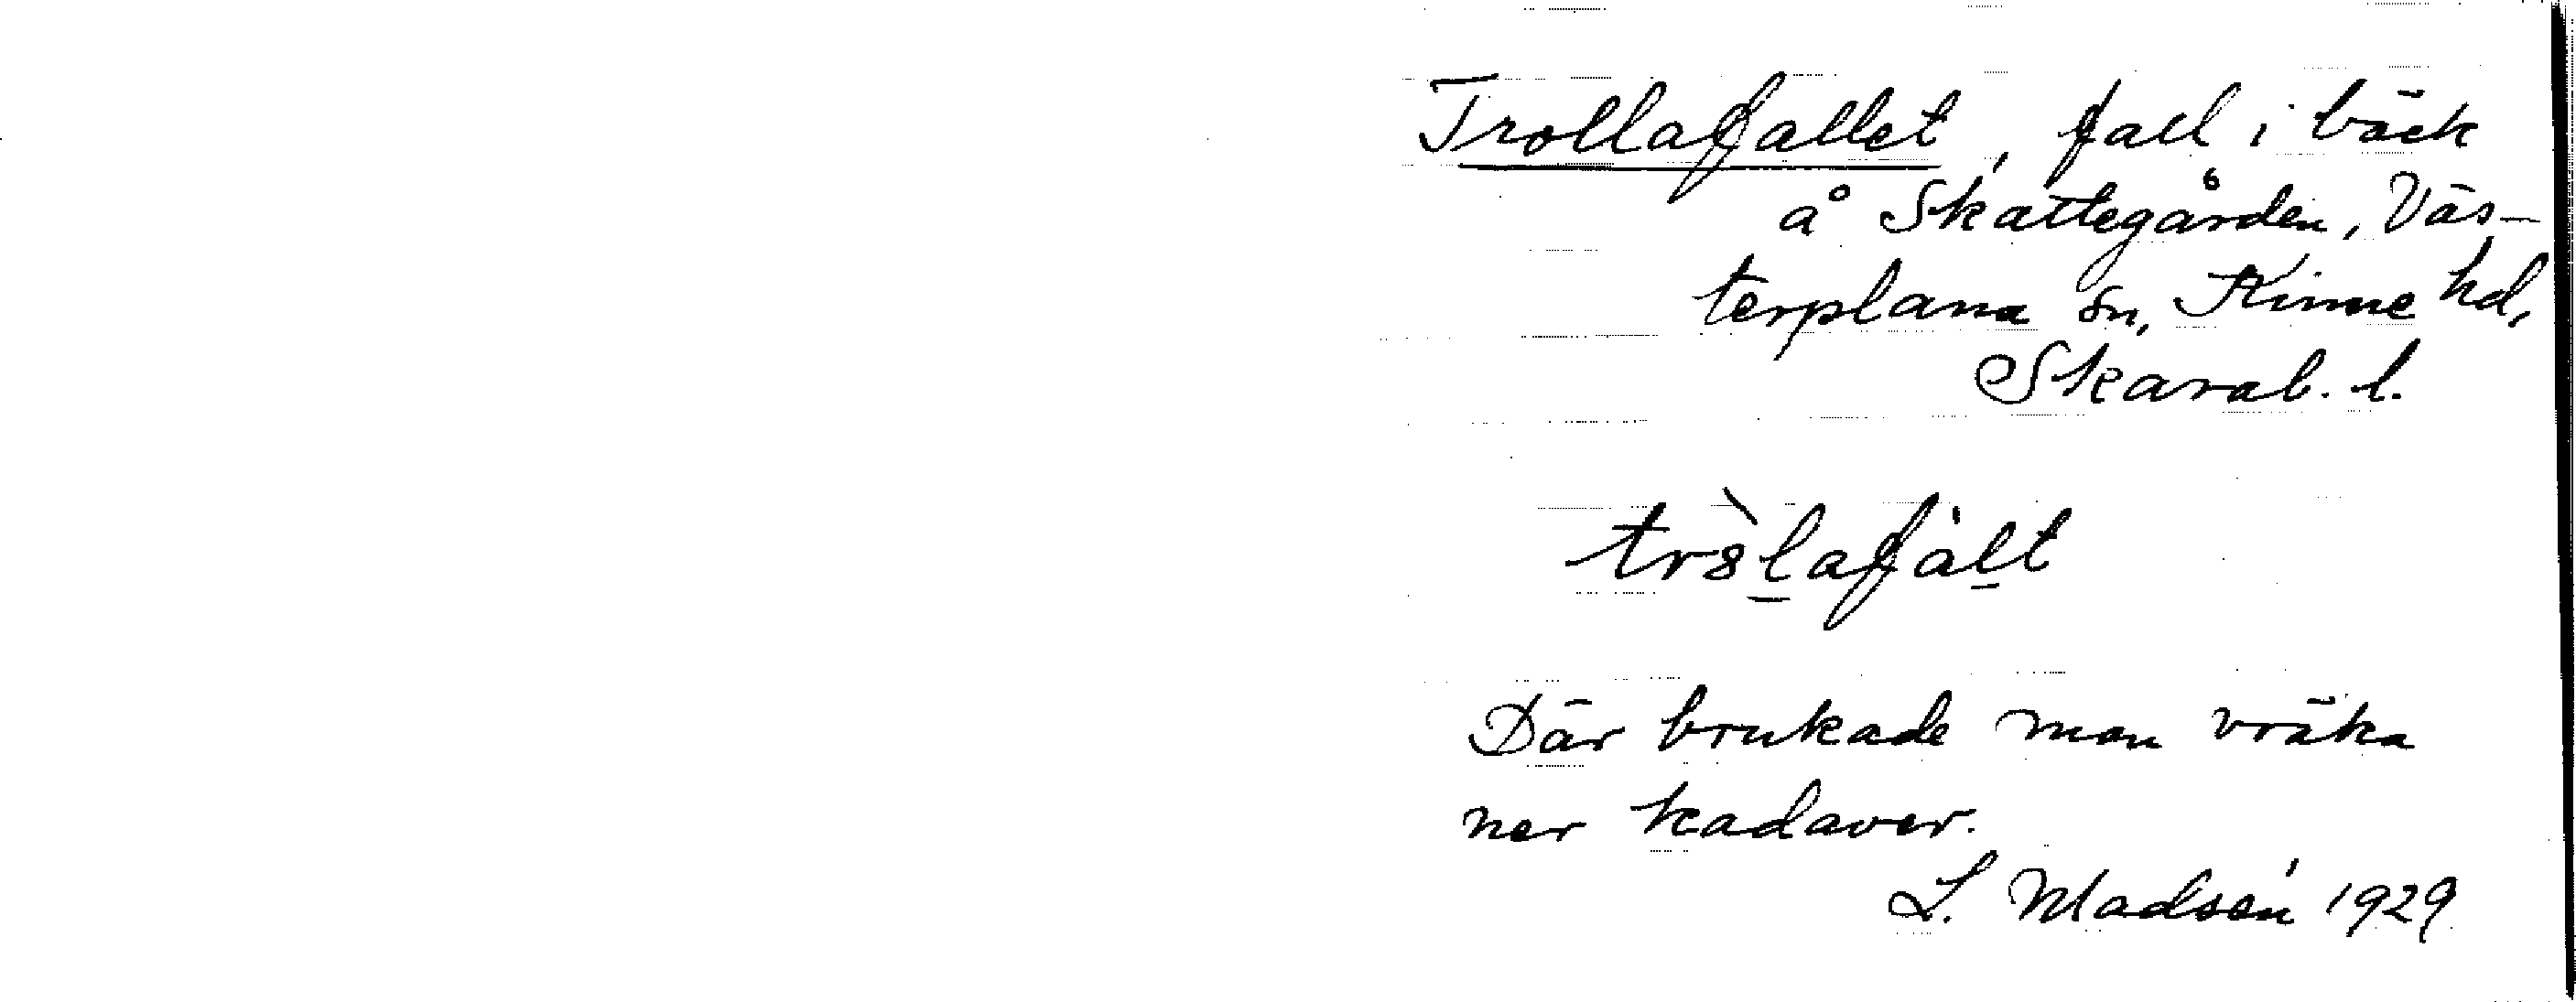 Trollafallet, fall i bäck
å Skattegården, Väs-
terplana sn, Kinne hd,
Skarab. l.
Där brukade man vräka
ner kadaver.
L. Madsén 1929